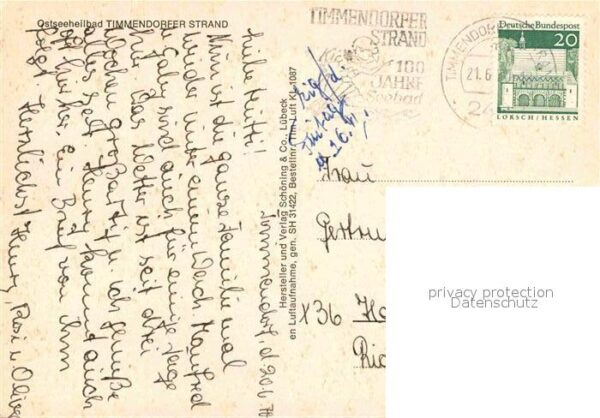 Ostseeheilbad TIMMENDORFER STRAND
Timmendorf, d. 20.6.
Liebe Mutti!
Nun ist die ganze Familie mal
wieder unter einem Dach. Manfred
u. Gaby sind auch für einige Tage
hier. Das Wetter ist seit drei
Wochen großartig u. ich genieße
alles sehr. Henry kommt auch
oft hier her. Ein Brief von ihm
folgt. Herzlichst Henry, Rosi u. Oliver
Hersteller und Verlag Schöning & Co., Lübeck
en Luftaufnahme, gen. SH 31422, Bestellnr. Tim Luft KL 1087
TIMMENDORFER
STRAND
100
JAHRE
Seebad
TIMMENDOR
21.6
24
Deutsche Bundespost
20
LORSCH/HESSEN
Frau
X36
privacy protection
Datenschutz